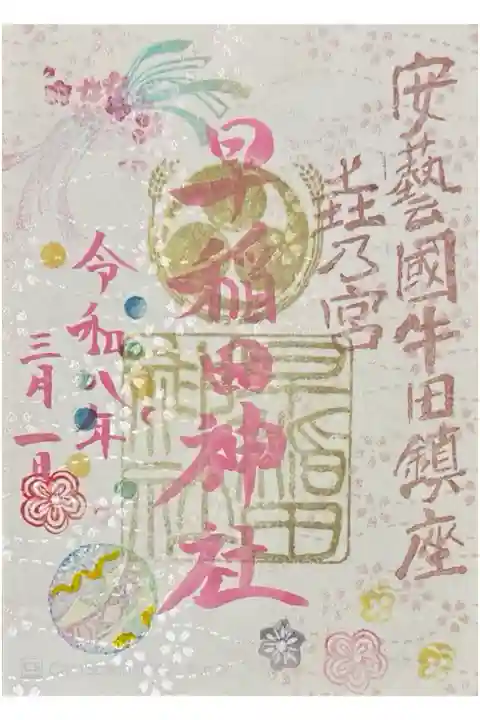 安藝國牛田鎮座
垚乃宮
早稲田神社
早稲田
神社
令和八年
三月一日